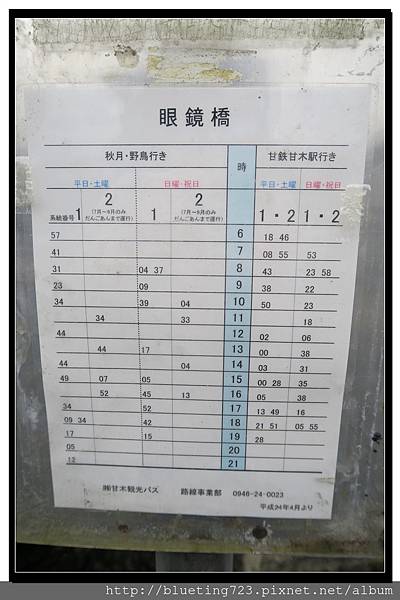 眼鏡橋
秋月・野鳥行き 時 甘鉄甘木駅行き
平日・土曜 日曜・祝日 平日・土曜 日曜・祝日
系統番号 1 2 (7月～9月のみだんごあんまで運行) 1 2 (7月～9月のみだんごあんまで運行) 1・2 1・2
57 6 18 46
41 7 08 55 53
31 04 37 8 43 23 58
23 09 9 38 22
34 39 04 10 50 23
34 33 11 18
44 12 02 06
44 17 13 00 38
44 04 14 03 31
49 07 05 15 00 28 35
52 45 13 16 05 38
34 52 17 13 49 16
09 34 42 18 21 51 05 55
17 15 19 28
05 20
12 21
㈱甘木観光バス 路線事業部 0946-24-0023
平成24年4月より
http://blueting723.pixnet.net/album